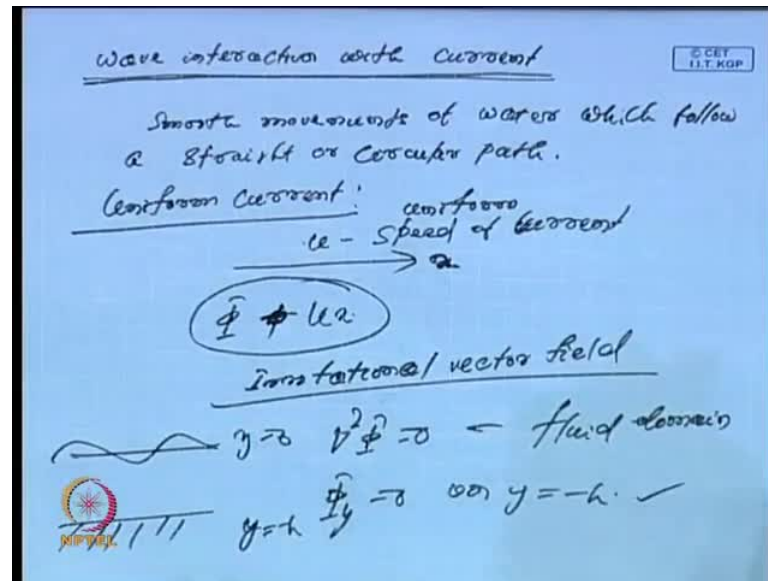 wave interaction with current
© CET
I.I.T. KGP
Smooth movements of water which follow
a straight or circular path.
Uniform current:
uniform
u - speed of current
x
Φ + ux
Irrotational vector field
y=0 ∇²Φ=0 ← fluid domain
y=-h Φy=0 on y=-h.
NPTEL